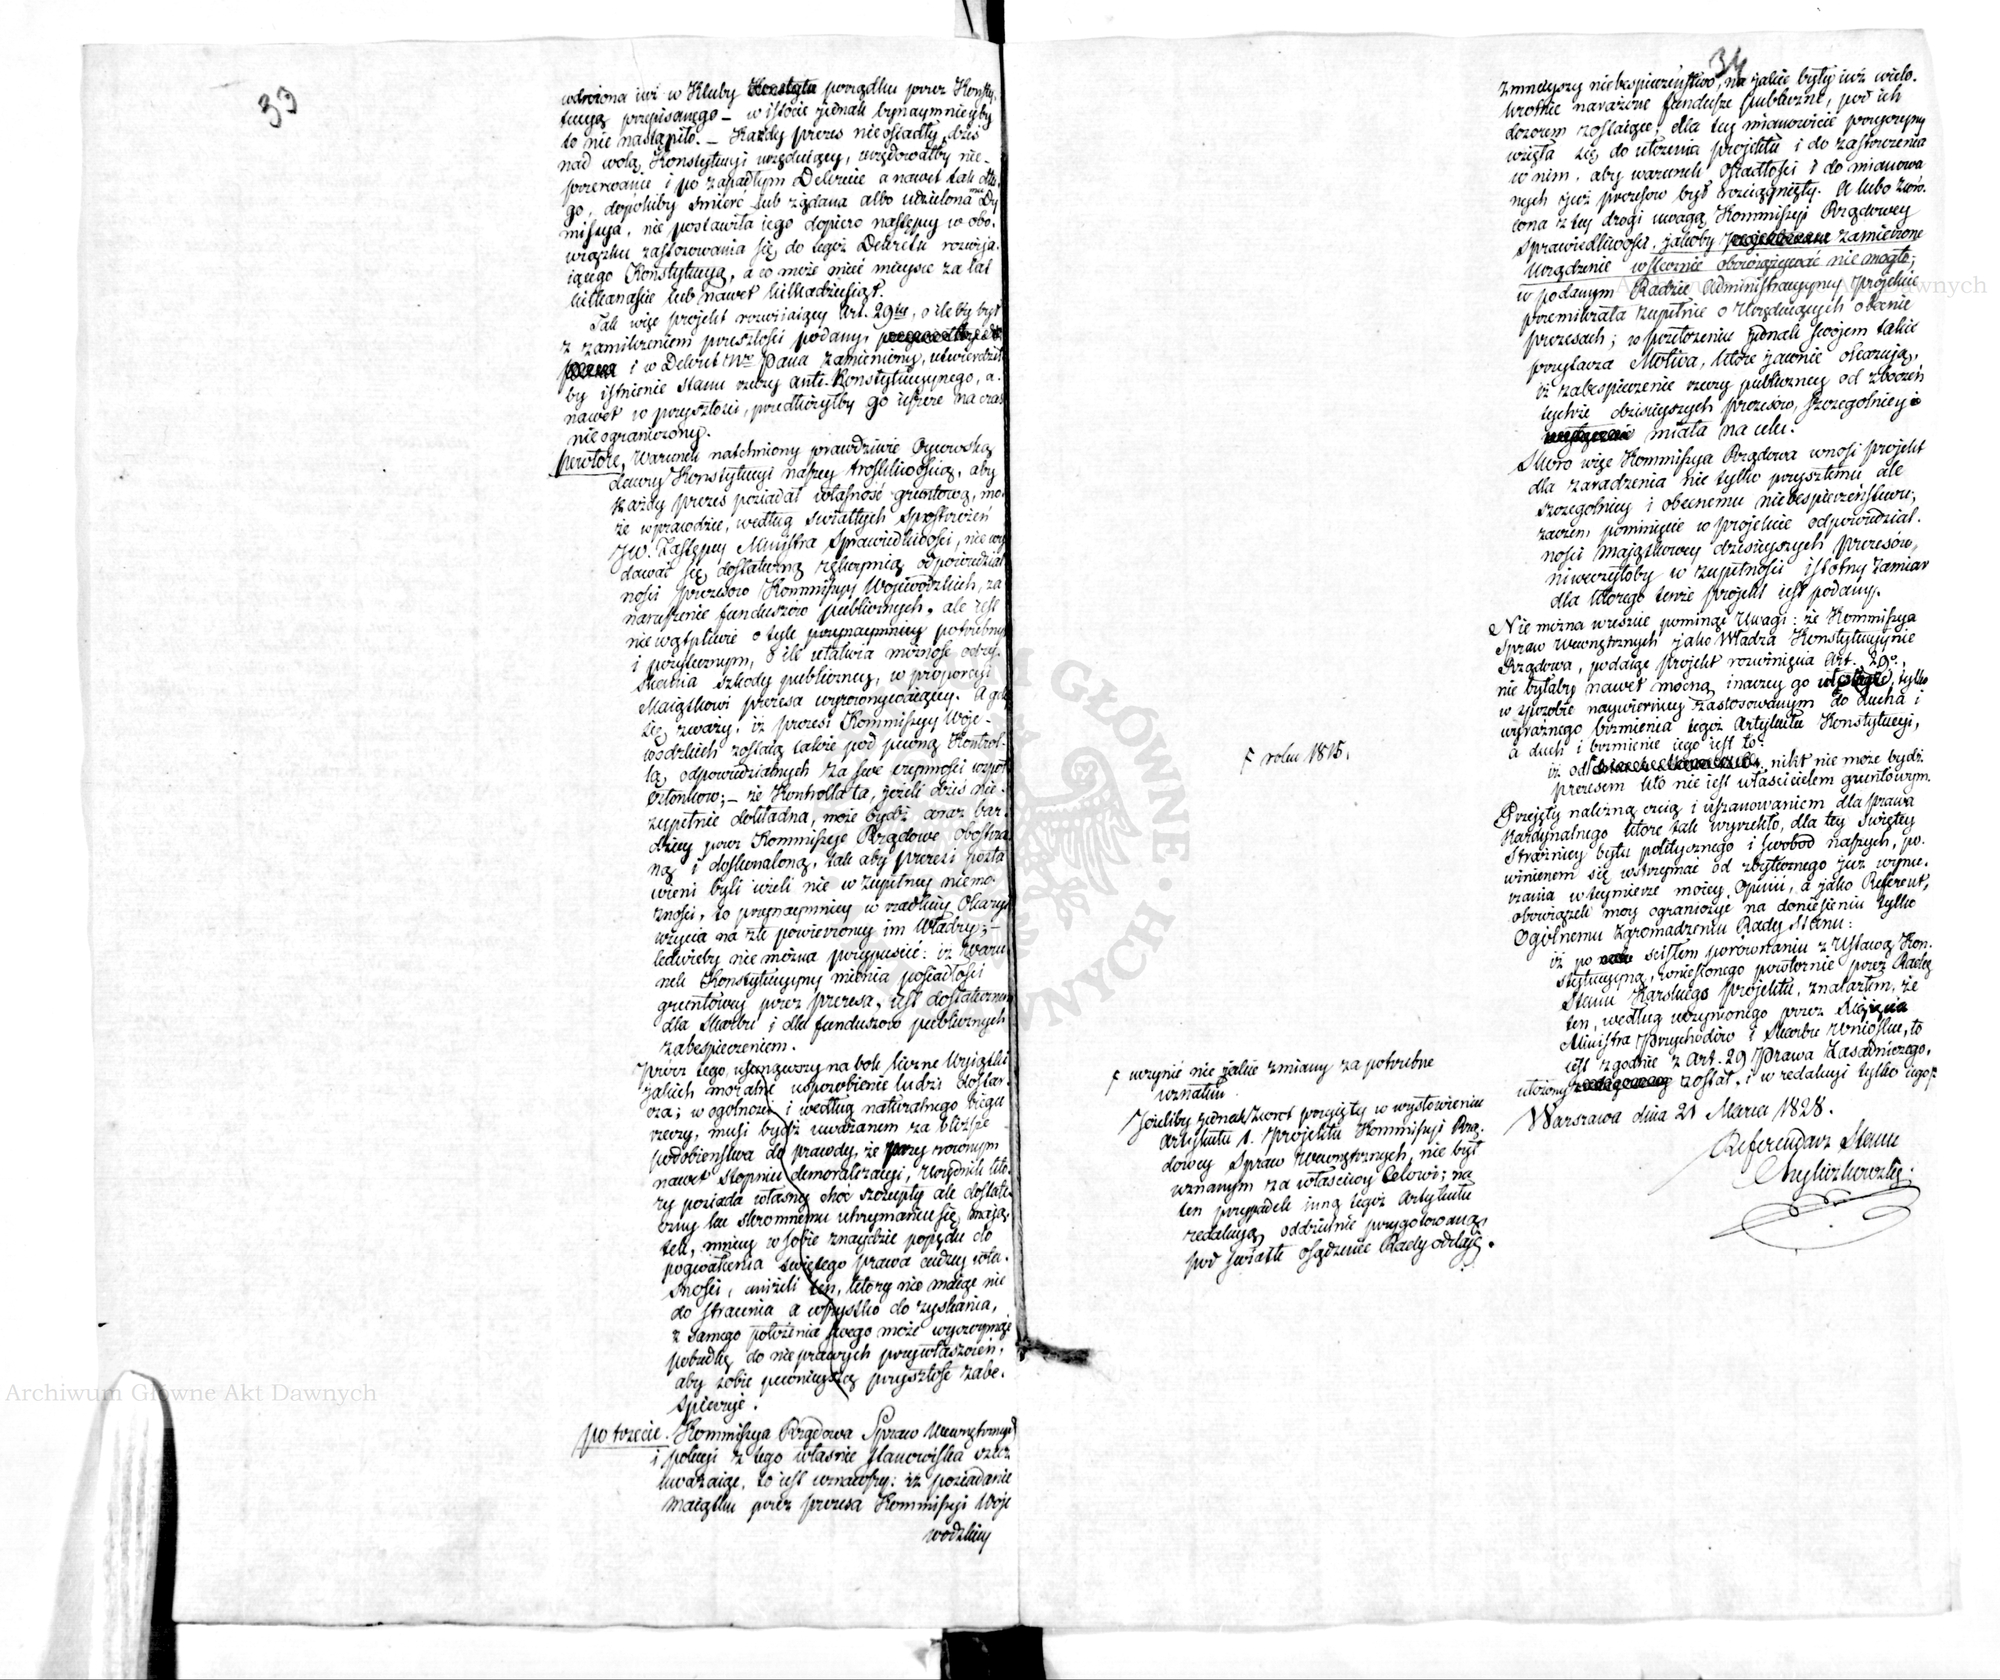 33
wdrożona iuż w Kluby porządku przez Konsty-
tucyą przepisanego – w istocie jednak bynaymnieyby
to nie nastąpiło. – Każdy prezes nieosiadły dziś
nad wolą Konstytucyi urzęduiący, urzędowałby nie-
przerwanie i po zapadłym Dekrecie a nawet tak dłu-
go, dopókiby śmierć lub żądana albo udzielona mu Dy-
missya, nie postawiła iego dopiero następcy w obo-
wiązku zastosowania się do tegoż Dekretu rozwija-
iącego Konstytucyą, a co może mieć mieysce za lat
kilkanaście lub nawet kilkadziesiąt.
Tak więc projekt rozwiiaiący Art. 29ty, o ileby był
z zamilczeniem przeszłości podany,
i w Dekret Nro Pana zamieniony, utwierdził
by istnienie stanu rzeczy anti-Konstytucyinego, a
nawet w przyszłości, przedłużyłby go ieszcze na czas
nieograniczony.
powtóre, Warunek natchniony prawdziwie Oycowską
dawcy Konstytucyi naszey troskliwością, aby
każdy prezes posiadał własność gruntową, mo-
że wprawdzie, według światłych spostrzeżeń
JW. Zastępcy Ministra Sprawiedliwości, nie wy-
dawać się dostateczną rękoymią odpowiedzial-
ności prezesów Kommissyy Woiewódzkich, za
naruszenie funduszów publicznych, ale iest
niewątpliwie o tyle przynaymniey potrzebnym
i pożytecznym, o ile ułatwia możność odzy-
skania szkody publiczney, w proporcyi
Maiątkowi prezesa wyrównywaiącey. A gdy
się zważy, iż prezesi Kommissyy Woje-
wódzkich zostaią także pod pewną Kontrol-
lą, odpowiedzialnych za swe czynności współ
członków; – że Kontrolla ta, jeżeli dziś nie-
zupełnie dokładna, może bydź coraz bar-
dziey przez Kommissye Rządowe obostrzo-
ną i doskonaloną, tak aby prezesi posta-
wieni byli ieżeli nie w zupełney niemo-
żności, to przynaymniey w rzadkiey Okazyi
użycia na złe powierzoney im Władzy; –
ledwieby nie można przypuścić: iż Waru-
nek Konstytucyiny mienia posiadłości
gruntowey przez prezesa, iest dostatecznem
dla Skarbu i dla funduszów publicznych
zabespieczeniem.
Prócz tego, usunąwszy na bok liczne Wyiątki
jakich moralne usposobienie ludzi dostar-
cza; w ogólności i według naturalnego biegu
rzeczy, musi bydź uważanem za bliższe
podobieństwa do prawdy, że przy równym
nawet stopniu demoralizacyi, Urzędnik któ-
ry posiada własny choć szczupły ale dostate-
czny ku skromnemu utrzymaniu się, mają-
tek, mniey w sobie znaydzie popędu do
pogwałcenia świętego prawa cudzey wła-
sności, aniżeli ten, który nie maiąc nic
do stracenia a wszystko do zyskania,
z samego położenia swego może wyczerpnąć
pobudkę do nieprawych przywłaszczeń,
aby sobie pewnieyszą przyszłość zabe-
spieczyć.
po trzecie. Kommissya Rządowa Spraw Wewnętrznych
i policyi z tego własnie stanowiska rzecz
uważaiąc, to iest uznawszy: iż posiadanie
Maiątku przez prezesa Kommissyi Woje-
wódzkiey
34
zmnieyszy niebespieczeństwo, na jakie były iuż wielo-
krotnie narażone fundusze publiczne, pod ich
dozorem zostaiące; dla tey mianowicie przyczyny
wzięła się do ułożenia projektu i do zastrzeżenia
w nim, aby warunek osiadłości i do mianowa-
nych iuż prezesów był rozciągnięty. A lubo zwró-
cona z tey drogi uwagą Kommissyi Rządowey
Sprawiedliwości, jakoby zamierzone
Urządzenie wstecznie obowiązywać nie mogło;
w podanym Radzie Administracyiney projekcie
przemilczała zupełnie o Urzęduiących obecnie
prezesach; w przełożeniu jednak swojem takie
przytacza Motiva, które jawnie okazują,
iż zabespieczenie rzeczy publiczney od zboczeń
tychże dzisieyszych prezesów, szczególniey
miała na celu.
Skoro więc Kommissya Rządowa wnosi projekt
dla zaradzenia nie tylko przyszłemu ale
szczególniey i obecnemu niebespieczeństwu,
zaczem pominięcie w projekcie odpowiedzial-
ności Majątkowey dzisieyszych prezesów,
niweczyłoby w zupełności istotny zamiar
dla którego tenże projekt iest podany.
Nie można wreszcie pominąć Uwagi: że Kommissya
Spraw Wewnętrznych jako Władza Konstytucyinie
Rządowa, podaiąc projekt rozwinięcia Art. 29o,
nie byłaby nawet mocną inaczey go, tylko
w sposobie naywierniey zastosowanym do ducha i
wyraźnego brzmienia tegoż Artykułu Konstytucyi,
a duch i brzmienie iego iest to:
iż od nikt nie może bydź
prezesem kto nie iest właścicielem gruntowym.
ƒ roku 1815.
Przejęty należną czcią i uszanowaniem dla prawa
Kardynalnego które tak wyrzekło, dla tey świętey
strażnicy bytu politycznego i swobód naszych, po-
winienem się wstrzymać od zbytecznego już wynu-
rzania w teymierze mojey Opinii, a jako Referent,
obowiązek moy ograniczyć na doniesieniu tylko
Ogólnemu Zgromadzeniu Rady Stanu:
iż po ścisłem porównaniu z Ustawą Kon-
stytucyiną, wniesionego powtórnie przez Radcę
Stanu Karskiego projektu, znalazłem, że
ten, według uczynionego przez Xięcia
Ministra Przychodów i Skarbu Wniosku, to
iest zgodnie z Art. 29 Prawa Zasadniczego,
ułożony został, i w redakcyi tylko iego ƒ
ƒ uczynić nie jakie zmiany za potrzebne
uznałem.
Jeżeliby jednak zwrot przyięty w wysłowieniu
Artykułu 1. Projektu Kommissyi Rzą-
dowey Spraw Wewnętrznych, nie był
uznanym za właściwy Celowi; na
ten przypadek inną tegoż Artykułu
redakcyą oddzielnie przygotowaną,
pod światłe osądzenie Rady oddaię.
Warszawa dnia 21 Marca 1828.
Referendarz Stanu